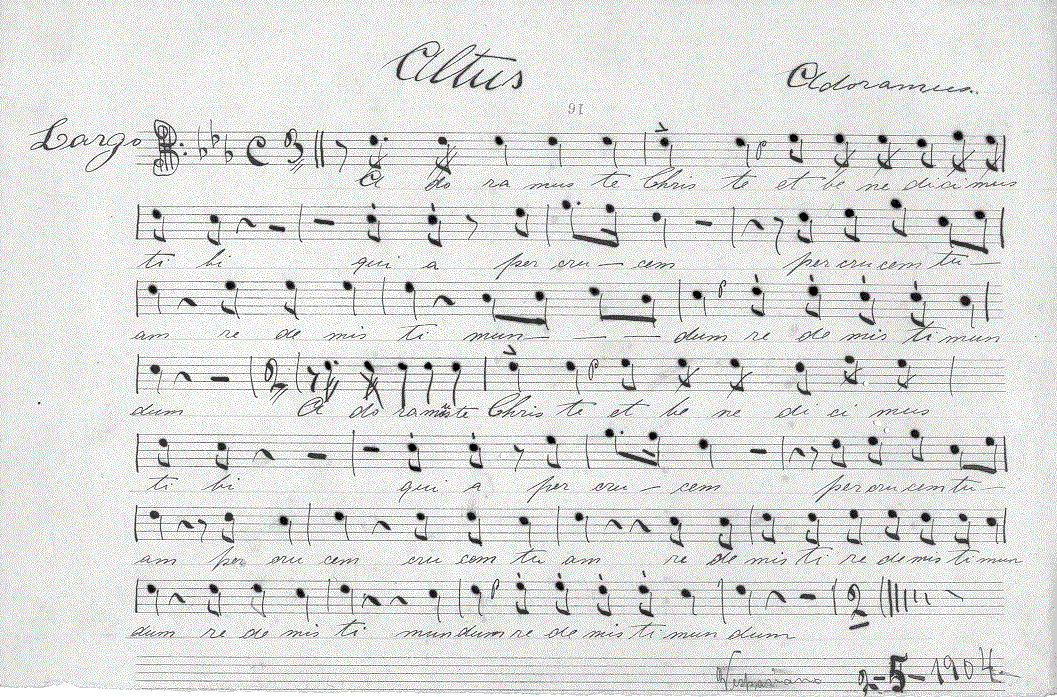 Altus
Adoramus..
16
Largo
A do ra mus te Chris te et be ne di ci mus
ti bi qui a per cru – cem per cru cem tu –
am re de mis ti mun – – – dum re de mis ti mun
dum A do ra mus te Chris te et be ne di ci mus
ti bi qui a per cru – cem per cru cem tu –
am per cru cem cru cem tu am re de mis ti re de mis ti mun
dum re de mis ti mun dum re de mis ti mun dum
2-5-1904